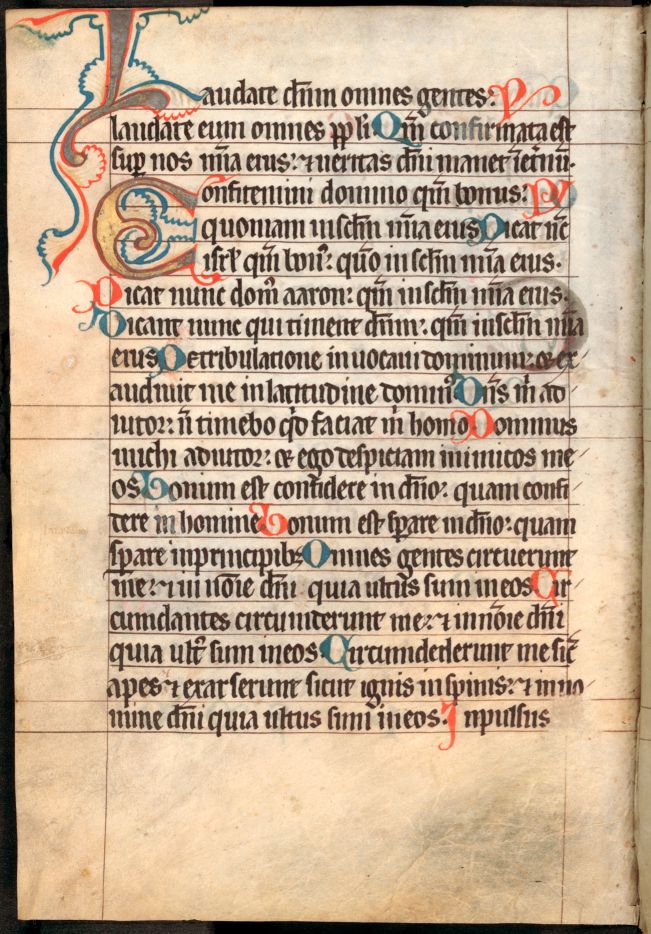 Laudate dn̄m omnes gentes:
laudate eum omnes ppl̄i. Qm̄ confirmata est
sup nos mīa eius: ⁊ ueritas dn̄i manet ī et̄nū.
Confitemini domino qm̄ bonus:
quoniam in sclm̄ mīa eius Dicat nc̄
isrl̄ qm̄ bonꝰ: qm̄o in sclm̄ mīa eius.
Dicat nunc domꝰ aaron: qm̄ in sclm̄ mīa eius.
Dicant nunc qui timent dn̄m: qm̄ in sclm̄ mīa
eius De tribulatione inuocaui dominum: & ex
audiuit me in latitudine dominꝰ Dn̄s m̄ ad
iutor: n̄ timebo qd̄ faciat m̄ homo Dominus
michi adiutor: & ego despiciam inimicos me
os Bonum est confidere in dn̄o: quam confi
dere in homine Bonum est sp̄are in dn̄o: quam
sp̄are in principibꝫ Omnes gentes circuierunt
me: ⁊ in noīe dn̄i quia ultus sum in eos Cir
cumdantes circumderunt me: ⁊ in noīe dn̄i
quia ultꝰ sum in eos. Circumdederunt me sic̄
apes ⁊ exarserunt sicut ignis in spinis: ⁊ in no
mine dn̄i quia ultus sum in eos. Inpulsus